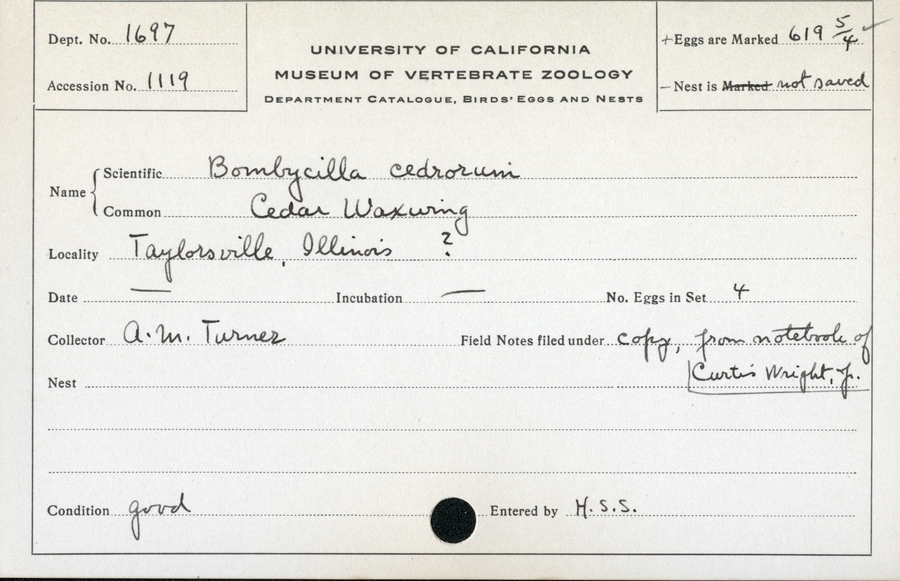 Dept. No. 1697
Accession No. 1119
UNIVERSITY OF CALIFORNIA
MUSEUM OF VERTEBRATE ZOOLOGY
DEPARTMENT CATALOGUE, BIRDS' EGGS AND NESTS
+Eggs are Marked 619 5/4 ✓
–Nest is Marked not saved
Name { Scientific Bombycilla cedrorum
Common Cedar Waxwing
Locality Taylorsville, Illinois ?
Date — Incubation — No. Eggs in Set 4
Collector A. M. Turner Field Notes filed under copy, from notebook of
Curtis Wright, Jr.
Nest
Condition good Entered by H. S. S.